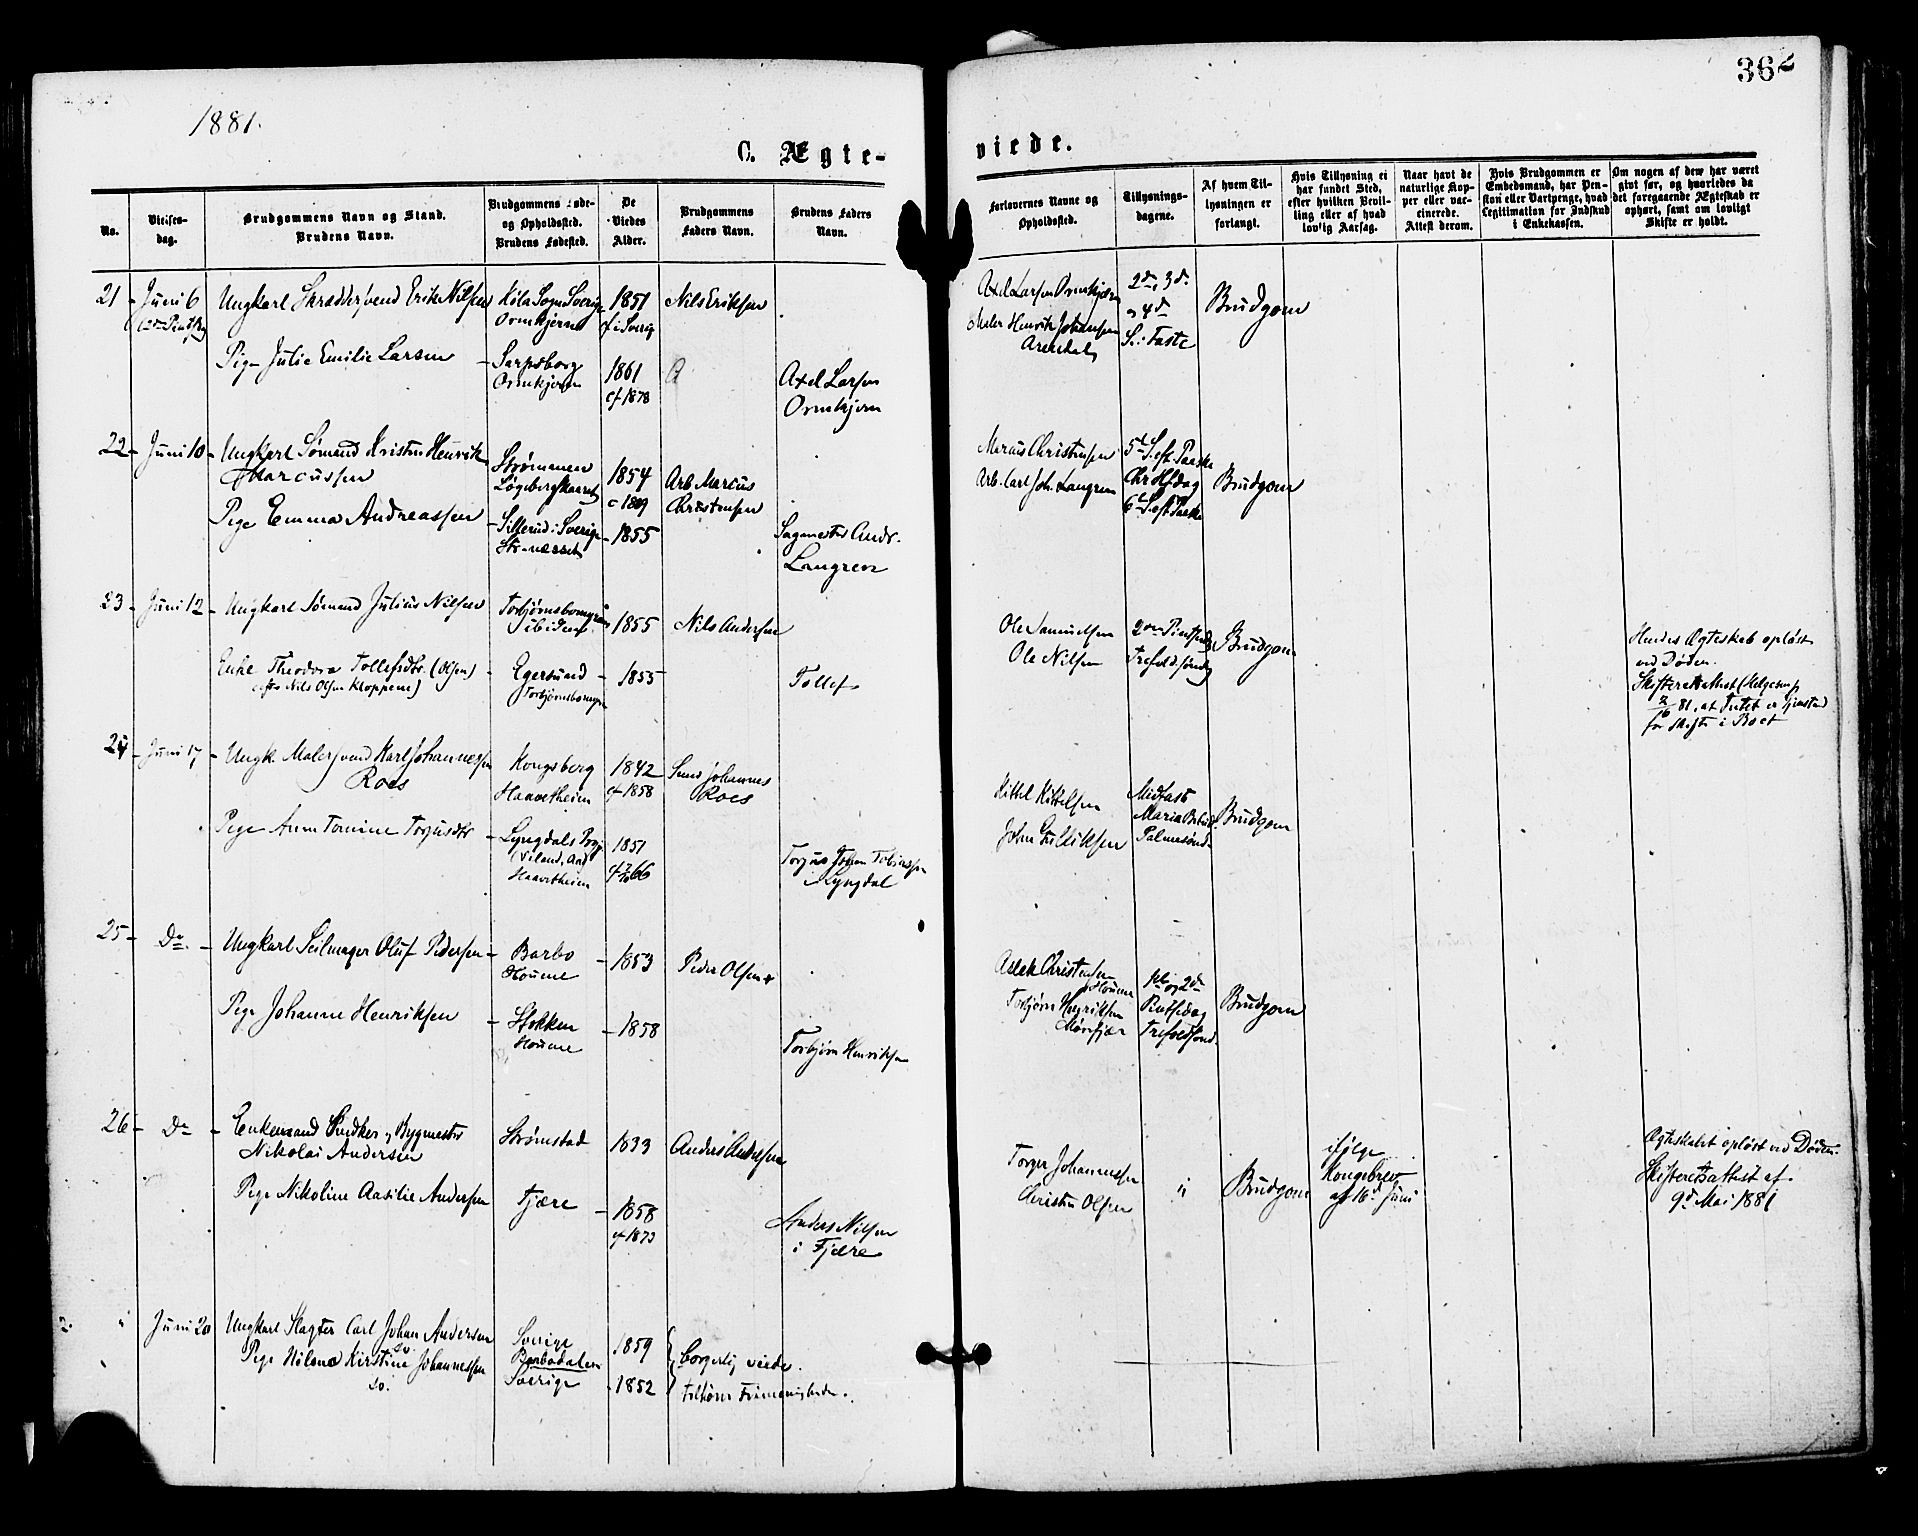 1881.
362
C. Ægte-
viede.
No.
Vielses-
dag.
Brudgommens Navn og Stand.
Brudens Navn.
Brudgommens Føde-
og Opholdssted.
Brudens Fødested.
De
Viedes
Alder.
Brudgommens
Faders Navn.
Brudens Faders
Navn.
Forlovernes Navne og
Opholdssted.
Tillysnings-
dagene.
Af hvem Til-
lysningen er
forlangt.
Hvis Tillysning ei
har fundet Sted,
efter hvilken Bevil-
ling eller af hvad
lovlig Aarsag.
Naar havt de
naturlige Kop-
per eller vac-
cinerede.
Attest derom.
Hvis Brudgommen er
Embedsmand, har Pen-
sion eller Vartpenge, hvad
Legitimation for Indskud
i Enkekassen.
Om nogen af dem har været
givt før, og hvorledes da
det foregaaende Ægteskab er
ophørt, samt om lovligt
Skifte er holdt.
21 - Juni 6
Ungkarl Skræddersvend Erik Nilsen
Kila Sogn Sverig
Ormkjern
1851
cf i Sverig
Nils Eriksen
Axel Larsen Ormkjern
Maler Henrik Johansen
Arendal
2den, 3de
og 4de
S. i Faste
Brudgom
Pige Julie Emilie Larsen
Sarpsborg
Ormkjern
1861
cf 1878
Axel Larsen
Ormkjern
22 - Juni 10
Ungkarl Sømand Kristen Henrik
Marcussen
Strømmen
1854
Arb. Marcus
Christensen
Marcus Christensen
Arb. Carl Joh. Langren
5te S. eft. Paaske
Chr Hf dag
6te S. eft Paaske
Brudgom
Pige Emma Andreassen
Sillerud i Sverige
1855
Sagmester Andr.
Langren
23 - Juni 12
Ungkarl Sømand Julius Nilsen
ibidem
1855
Nils Andersen
Ole Samuelsen
Ole Nilsen
2den Pintsedag
Trefold. søndag
Brudgom
Enke Theodora Tollefsdtr. (Olsen)
(efter Nils Olsen Kloppene)
Egersund
1855
Tollef
Hendes Ægteskab opløst
ved Døden.
Skifteretsattest (Helgesen)
81, at Intet er
for Skifte i Boet
24 - Juni 17
Ungk. Malersvend Karl Johannessen
Roes
Kongsberg
Haavetheien
1842
cf 1858
Johannes
Roes
Kittel Kittelsen
John Gullliksen
Midfast
Maria Bebud.
Palmesønd.
Brudgom
Pige Anne Tomine Torjusdtr
Lyngdals Prgj
Haavetheien
1851
Lyngdal
25 - Do.
Ungkarl Seilmager Oluf Pedersen
Barbo
1853
Peder Olsen
Aslak Christensen
Torbjørn Henriksen
1ste og 2den
Pintsedag
Trefoldsønd.
Brudgom
Pige Johanne Henriksen
Stokken
1858
Torbjørn Henriksen
26 - Do
Enkemand Snedker og Bygmester
Nikolai Andersen
Strømstad
1833
Anders Andersen
Torger Johannessen
Christen Olsen
"
Brudgom
ifølge
Kongebrev
af 16de Juni
Ægteskabet opløst ved Døden.
Skifteretsattest af
9de Mai 1881
Pige Nikoline Aasilie Andersen
Fjære
1858
cf 1873
Anders Nilsen
i Fjære
2. " Juni 20
Ungkarl Slagter Carl Johan Andersen
do.
Sverige
Barbodalen
1859
borgerlig viede.
Pige Kirstine Johannessen
do.
Sverige
1852